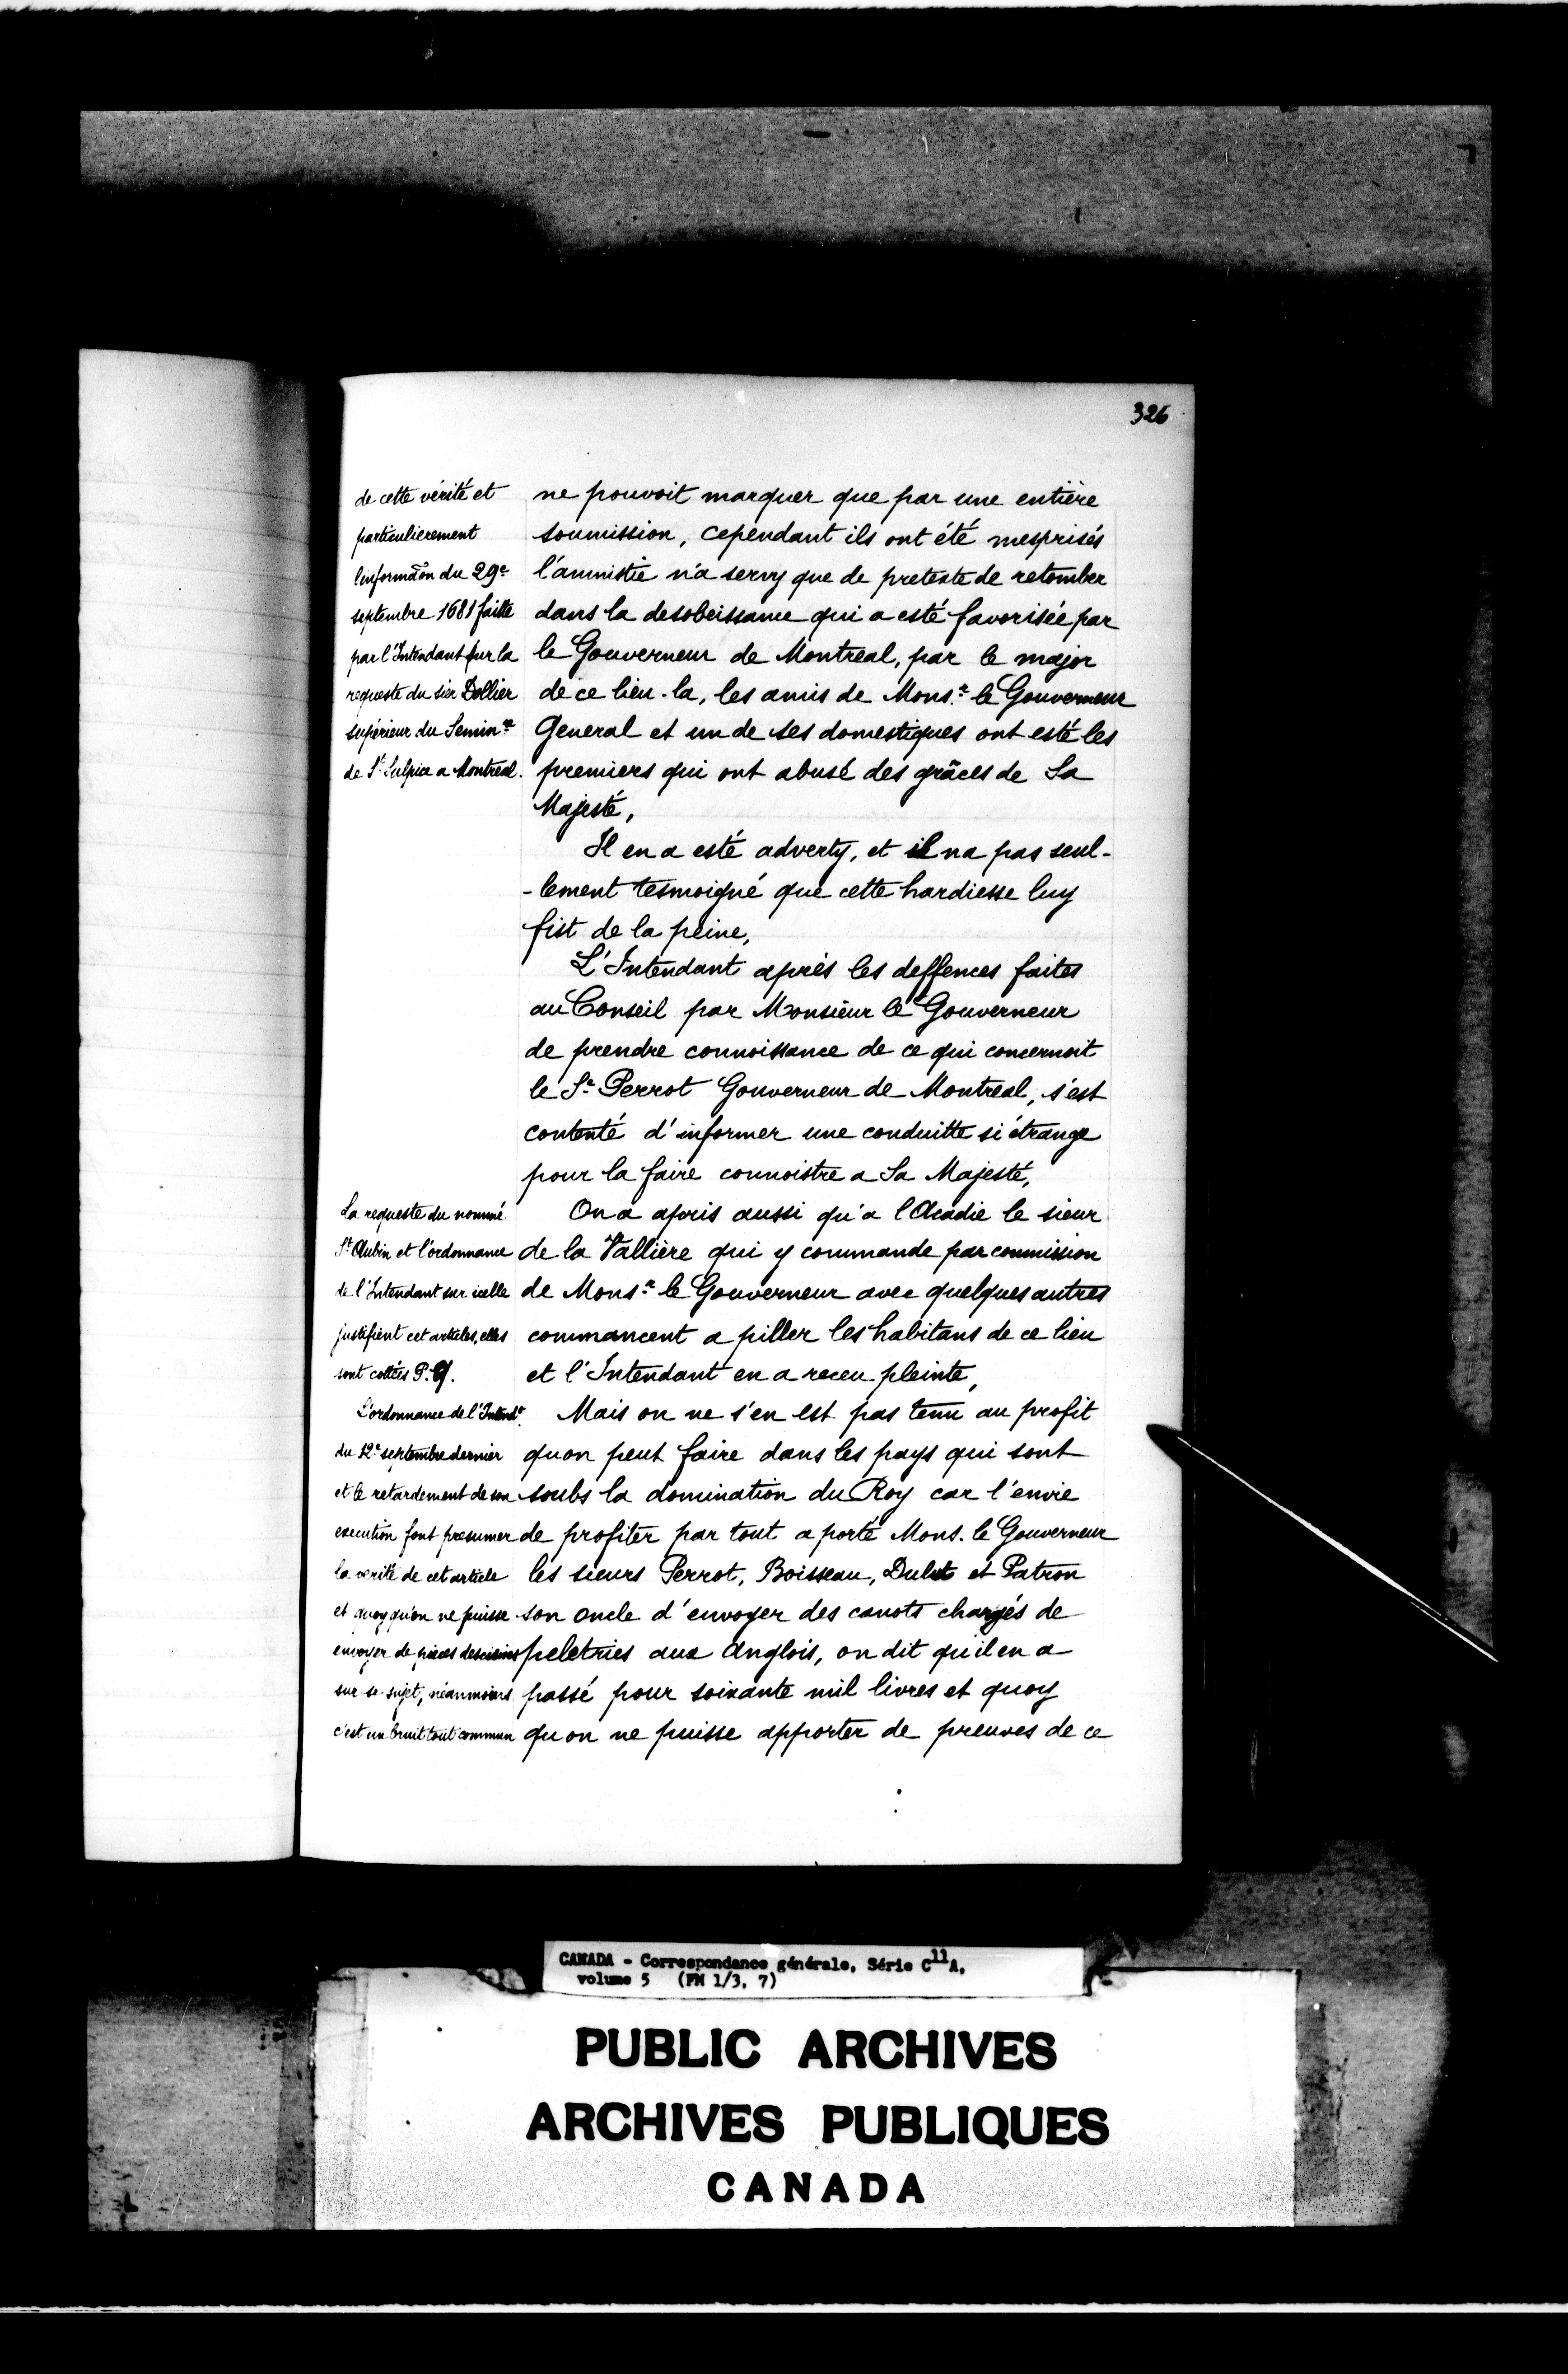 326
de cette vérité et
particulierement
l'informãon du 29e
septembre 1681 faitte
par l'Intendant sur la
requeste du sier Dollier
supérieur du Seminre
de St Sulpice a Montreal.
ne pouvoit marquer que par une entière
soumission, cependant ils ont été mesprisés
l'amnistie n'a servy que de pretexte de retomber
dans la desobeissance qui a esté favorisée par
le Gouverneur de Montreal, par le major
de ce lieu-la, les amis de Monsr le Gouverneur
General et un de ses domestiques ont esté les
premiers qui ont abusé des grâces de Sa
Majesté,
Il en a esté adverty, et il na pas seul-
-lement tesmoigné que cette hardiesse luy
fist de la peine,
L'Intendant après les deffences faites
au Conseil par Monsieur le Gouverneur
de prendre connoissance de ce qui concernoit
le Sr Perrot Gouverneur de Montreal, s'est
contenté d'informer une conduitte si étrange
pour la faire connoistre a Sa Majesté,
La requeste du nommé
St Aubin et l'ordonnance
de l'Intendant sur icelle
justifient cet articles, elles
sont cottées P.
On a apris aussi qu'a l'Acadie le sieur
de la Vallière qui y commande par commission
de Monsr le Gouverneur avec quelques autres
commancent a piller les habitans de ce lieu
et l'Intendant en a receu pleinte,
L'ordonnance de l'Intendt
du 12e septembre dernier
et le retardement de son
execution font presumer
la verité de cet article
et quoy qu'on ne puisse
envoyer de pieces
sur ce sujet, néanmoins
c'est un bruit tout commun
Mais on ne s'en est pas tenu au profit
quon peut faire dans les pays qui sont
soubs la domination du Roy car l'envie
de profiter par tout a porté Mons. le Gouverneur
les sieurs Perrot, Boisseau, Dulut et Patron
son oncle d'envoyer des canots chargés de
peletries aux Anglois, on dit qu'il en a
passé pour soixante mil livres et quoy
qu on ne puisse apporter de preuves de ce
CANADA - Correspondance générale, Série C11A,
volume 5 (FM 1/3, 7)
PUBLIC ARCHIVES
ARCHIVES PUBLIQUES
CANADA